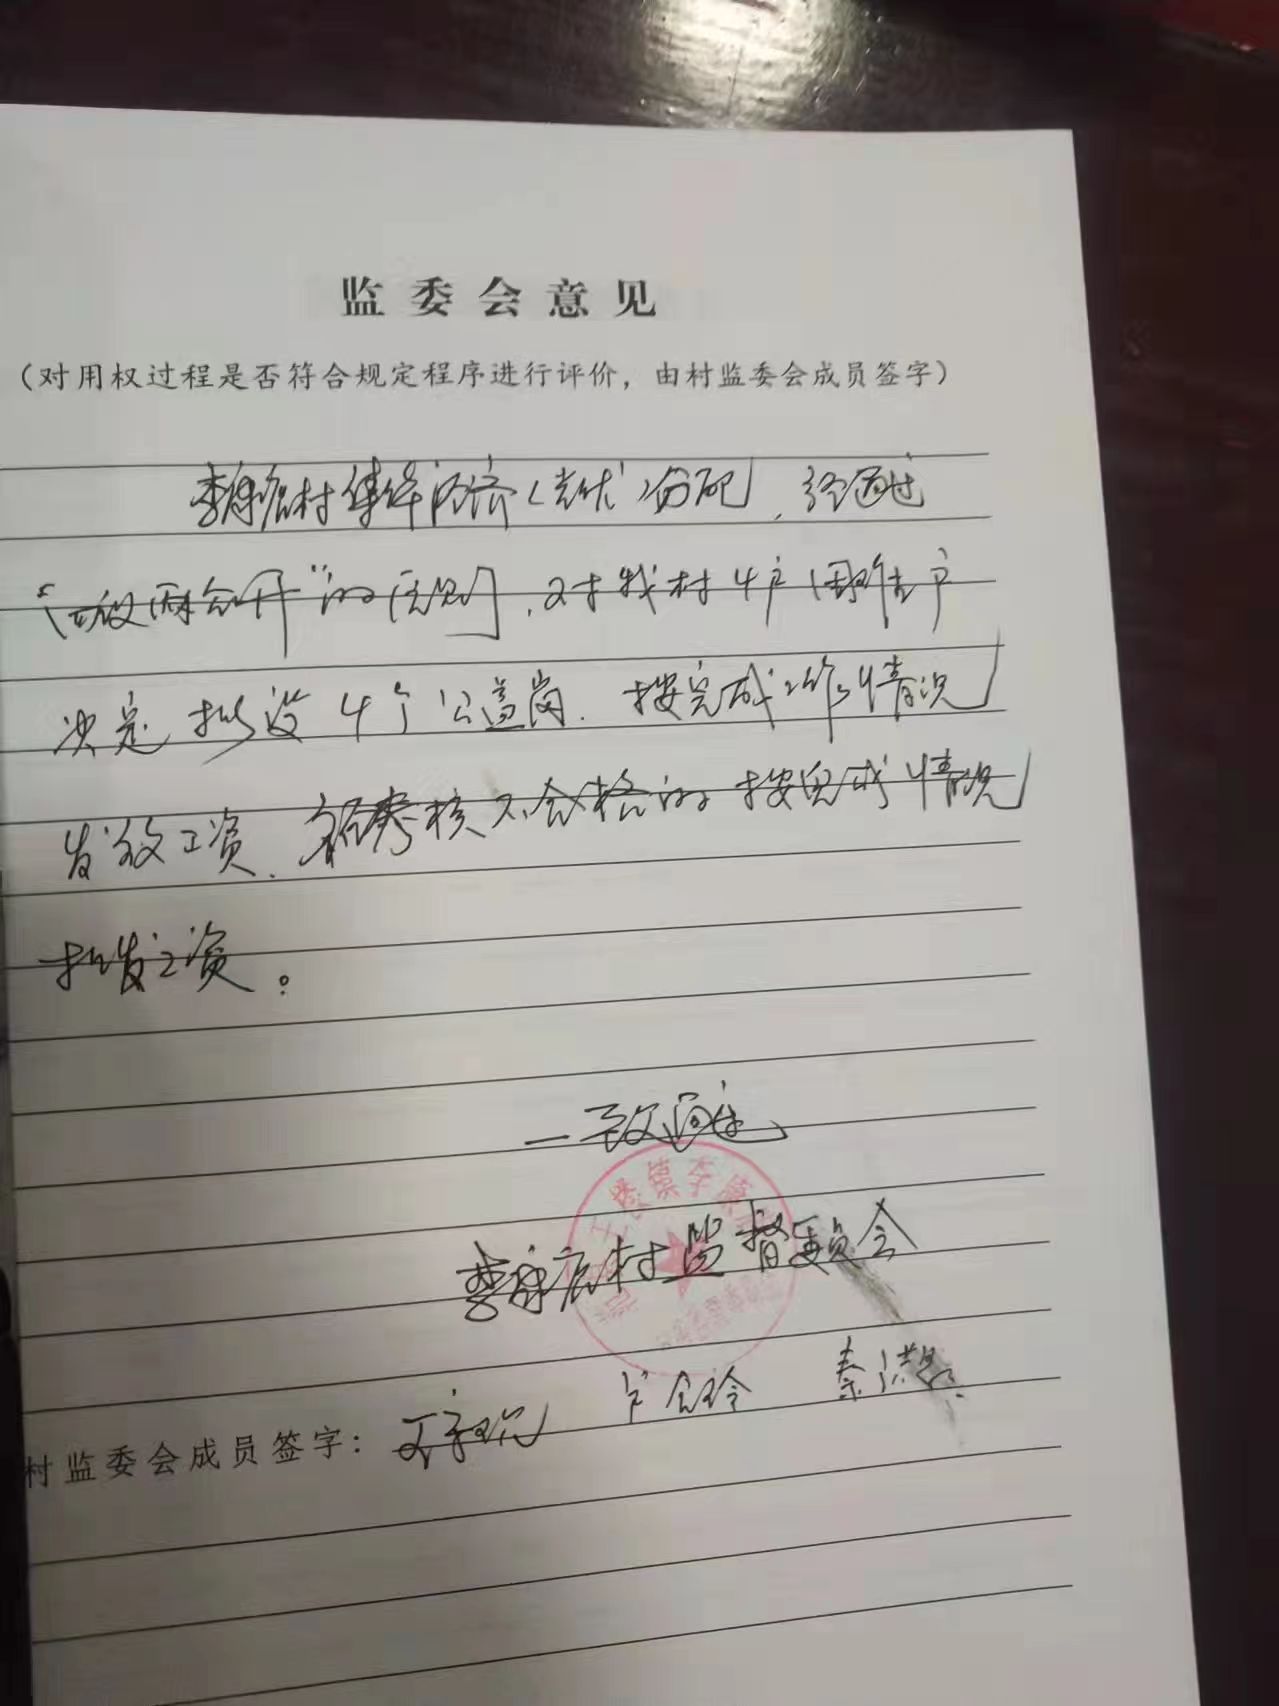 监委会意见
（对用权过程是否符合规定程序进行评价，由村监委会成员签字）
李康店村集体经济（光伏）分配，经过
“四议两公开”的原则，对我村4户困难户
决定批设4个公益岗，按完成工作情况
发放工资，经考核不合格的按完成情况
扣发工资。
一致同意
楼镇李康
李康店村监督委员会
村监委会成员签字：